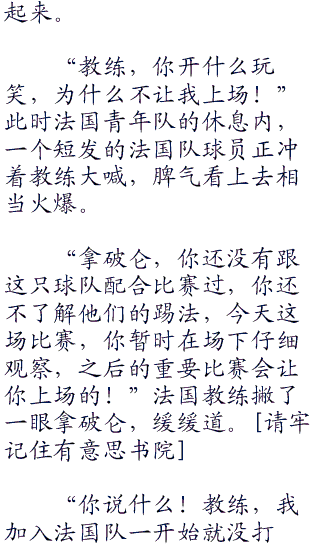 起来。
“教练，你开什么玩
笑，为什么不让我上场！”
此时法国青年队的休息内，
一个短发的法国队球员正冲
着教练大喊，脾气看上去相
当火爆。
“拿破仑，你还没有跟
这只球队配合比赛过，你还
不了解他们的踢法，今天这
场比赛，你暂时在场下仔细
观察，之后的重要比赛会让
你上场的！”法国教练撇了
一眼拿破仑，缓缓道。[请牢
记住有意思书院]
“你说什么！教练，我
加入法国队一开始就没打